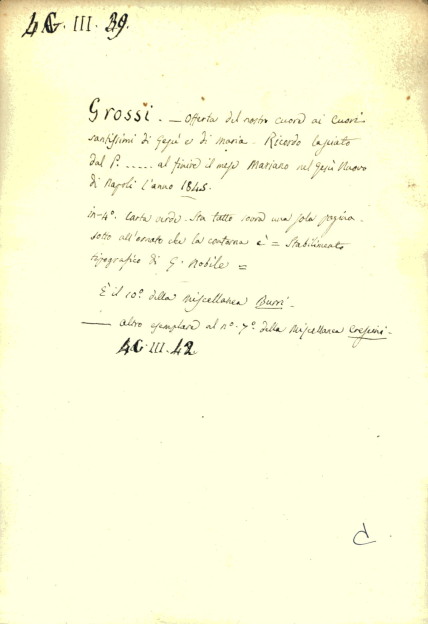 4G. III. 39.
Grossi. — Offerta del nostro cuore ai Cuori
santissimi di Gesù e di Maria. Ricordo lasciato
dal P. ..... al finire il mese Mariano nel Gesù Nuovo
di Napoli l'anno 1845.
in-4°. Carta verde. Sta tutto sovra una sola pagina.
sotto all'ornato che la contorna è = Stabilimento
tipografico di G. Nobile =
È il 10°. della Miscellanea Burri.
— Altro esemplare al n°. 7°. della Miscellanea
4G. III. 42